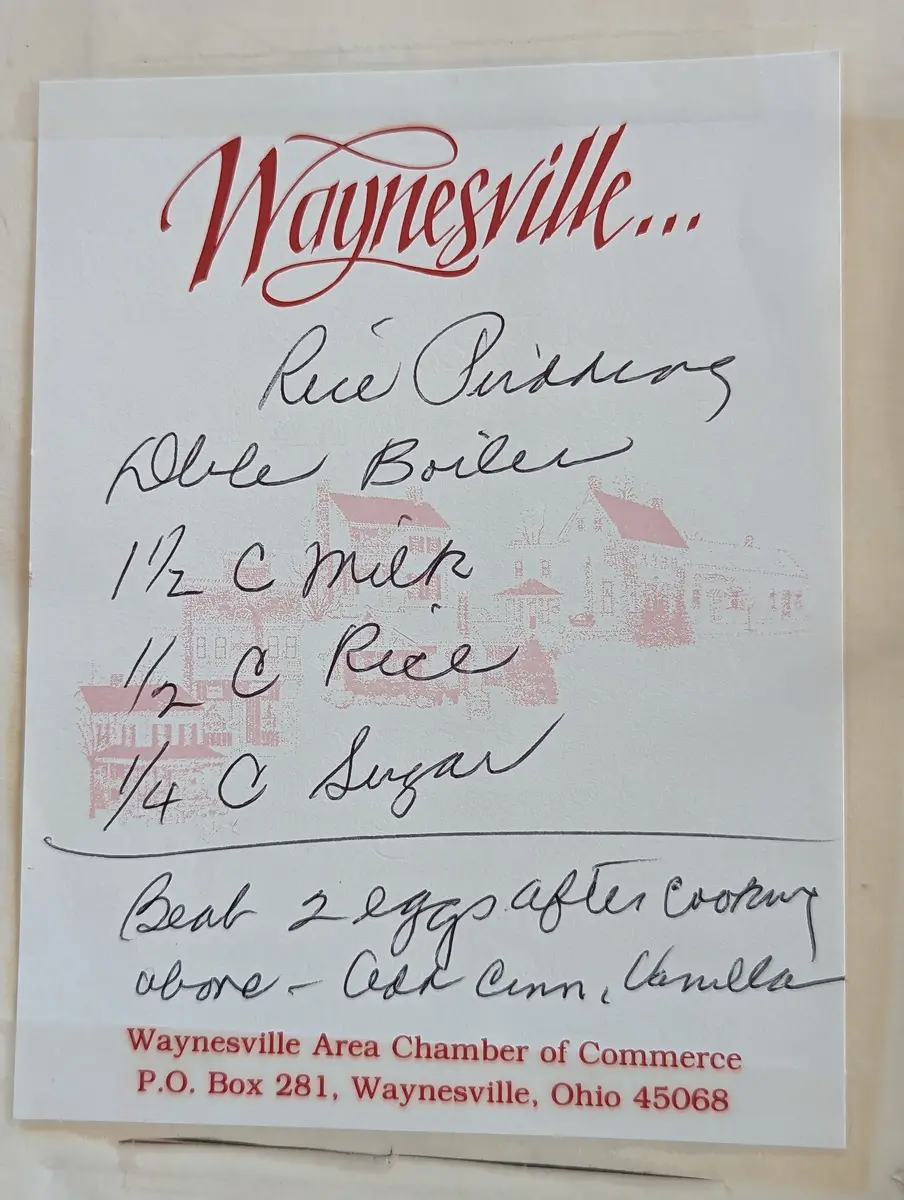 Waynesville...
Rice Pudding
Dble Boiler
1 1/2 C Milk
1/2 C Rice
1/4 C Sugar
Beat 2 eggs after cooking
above - Add Cinn, Vanilla
Waynesville Area Chamber of Commerce
P.O. Box 281, Waynesville, Ohio 45068